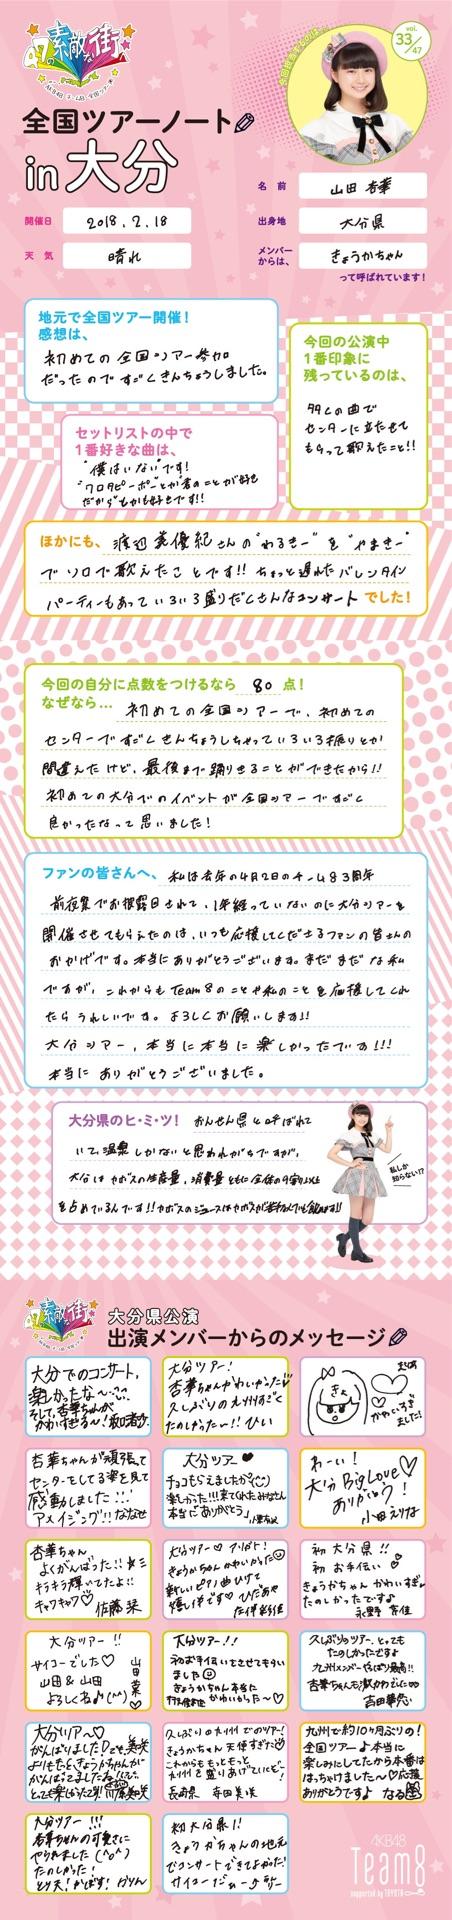 47の素敵な街へ
AKB48 チーム8 全国ツアー
vol.
33/47
全国ツアーノート
in 大分
開催日 2018.2.18
天気 晴れ
名前 山田杏華
出身地 大分県
メンバーからは、 きょうかちゃん
って呼ばれています!
地元で全国ツアー開催!
感想は、
初めての全国ツアー参加
だったのですごくきんちょうしました。
今回の公演中
1番印象に
残っているのは、
多くの曲で
センターに立たせて
もらって歌えたこと!!
セットリストの中で
1番好きな曲は、
"僕はいない"です!
ほかにも、 渡辺美優紀さんの"わるきー"を"やまきー"
でソロで歌えたことです!! ちょっと遅れたバレンタイン
パーティーもあっていろいろ盛りだくさんなコンサート でした!
今回の自分に点数をつけるなら 80 点!
なぜなら… 初めての全国ツアーで、初めての
センターですごくきんちょうしちゃっていろいろ振りとか
間違えたけど、最後まで踊りきることができたから!!
初めての大分でのイベントが全国ツアーですごく
良かったなって思いました!
ファンの皆さんへ、 私は去年の4月2日のチーム8 3周年
前夜祭でお披露目されて、1年経っていないのに大分ツアーを
開催させてもらえたのは、いつも応援してくださるファンの皆さんの
おかげです。本当にありがとうございます。まだまだな私
ですが、これからもTeam8のことや私のことを応援してくれ
たらうれしいです。よろしくお願いします!!
大分ツアー、本当に本当に楽しかったです!!!
本当にありがとうございました。
大分県のヒ・ミ・ツ! おんせん県と呼ばれて
いて、温泉しかないと思われがちですが、
大分はカボスの生産量、消費量ともに全体の9割以上
を占めているんです!!
私しか
知らない!?
47の素敵な街へ
大分県公演
出演メンバーからのメッセージ
大分でのコンサート、
楽しかったな〜
そして、杏華ちゃんが
かわいすぎる〜!
大分ツアー!
杏華ちゃんかわいかった♡
久しぶりの九州すごく
たのしかった〜!! ひい
きょ
かわいすぎ
ました!
杏華ちゃんが頑張って
センターをしてる姿を見て
感動しました!!!
アメイジング!! ななせ
大分ツアー♥
チョコもらえましたか
楽しかった!!! 来てくれたみなさん
本当にありがとう
わーい!
大分 Big Love♡
ありがとう!
小田えりな
杏華ちゃん
よくがんばった!!
キラキラ輝いてたよ!!
キャワキャワ♡ 佐藤栞
大分ツアー♡
きょうかちゃんかわいかった
初 大分県!!
初 お手伝い
きょうかちゃん かわいすぎ
たのしかったですよ
大分ツアー!!
サイコーでした♡
山田&山田
よろしくね♪(^^)
山田菜々美
大分ツアー!!
初お手伝いさせてもらい
ました
きょうかちゃん本当に
かわいかった〜♡
久しぶりのツアー、とっても
たのしかったですよ
九州メンバーやっぱり最高!!
吉田華恋
大分ツアー♡
がんばりました!
とっても楽しかったです!
久しぶりの九州でのツアー!
きょうかちゃん天使すぎた
これからももっともっと
九州を盛りあげていくどー!
長崎県 寺田美咲
九州で約10ヶ月ぶりの!
全国ツアー♪ 本当に
楽しみにしてたから本番は
はっちゃけました〜♡ 応援
ありがとうですよ なる
大分ツアー!!!
杏華ちゃんの可愛さに
やられました(^o^)
たのしかった!
とり天!かぼす! かりん
初 大分県!!
きょうかちゃんの地元
でコンサートできてよかった!
サイコーだぁー
AKB48
Team8
supported by TOYOTA